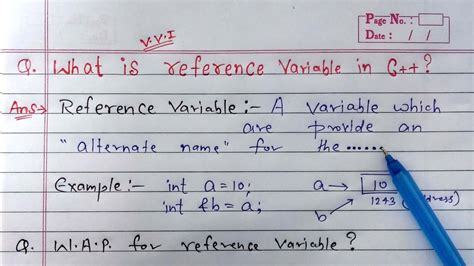 Page No. :
Date : / /
V.V.I
Q. What is reference Variable in C++?
Ans→ Reference Variable :- A variable which
are provide an
"alternate name" for the ......
Example :- int a=10; a→ 10
int &b=a; b 1243
Q. W.A.P. for reference Variable ?